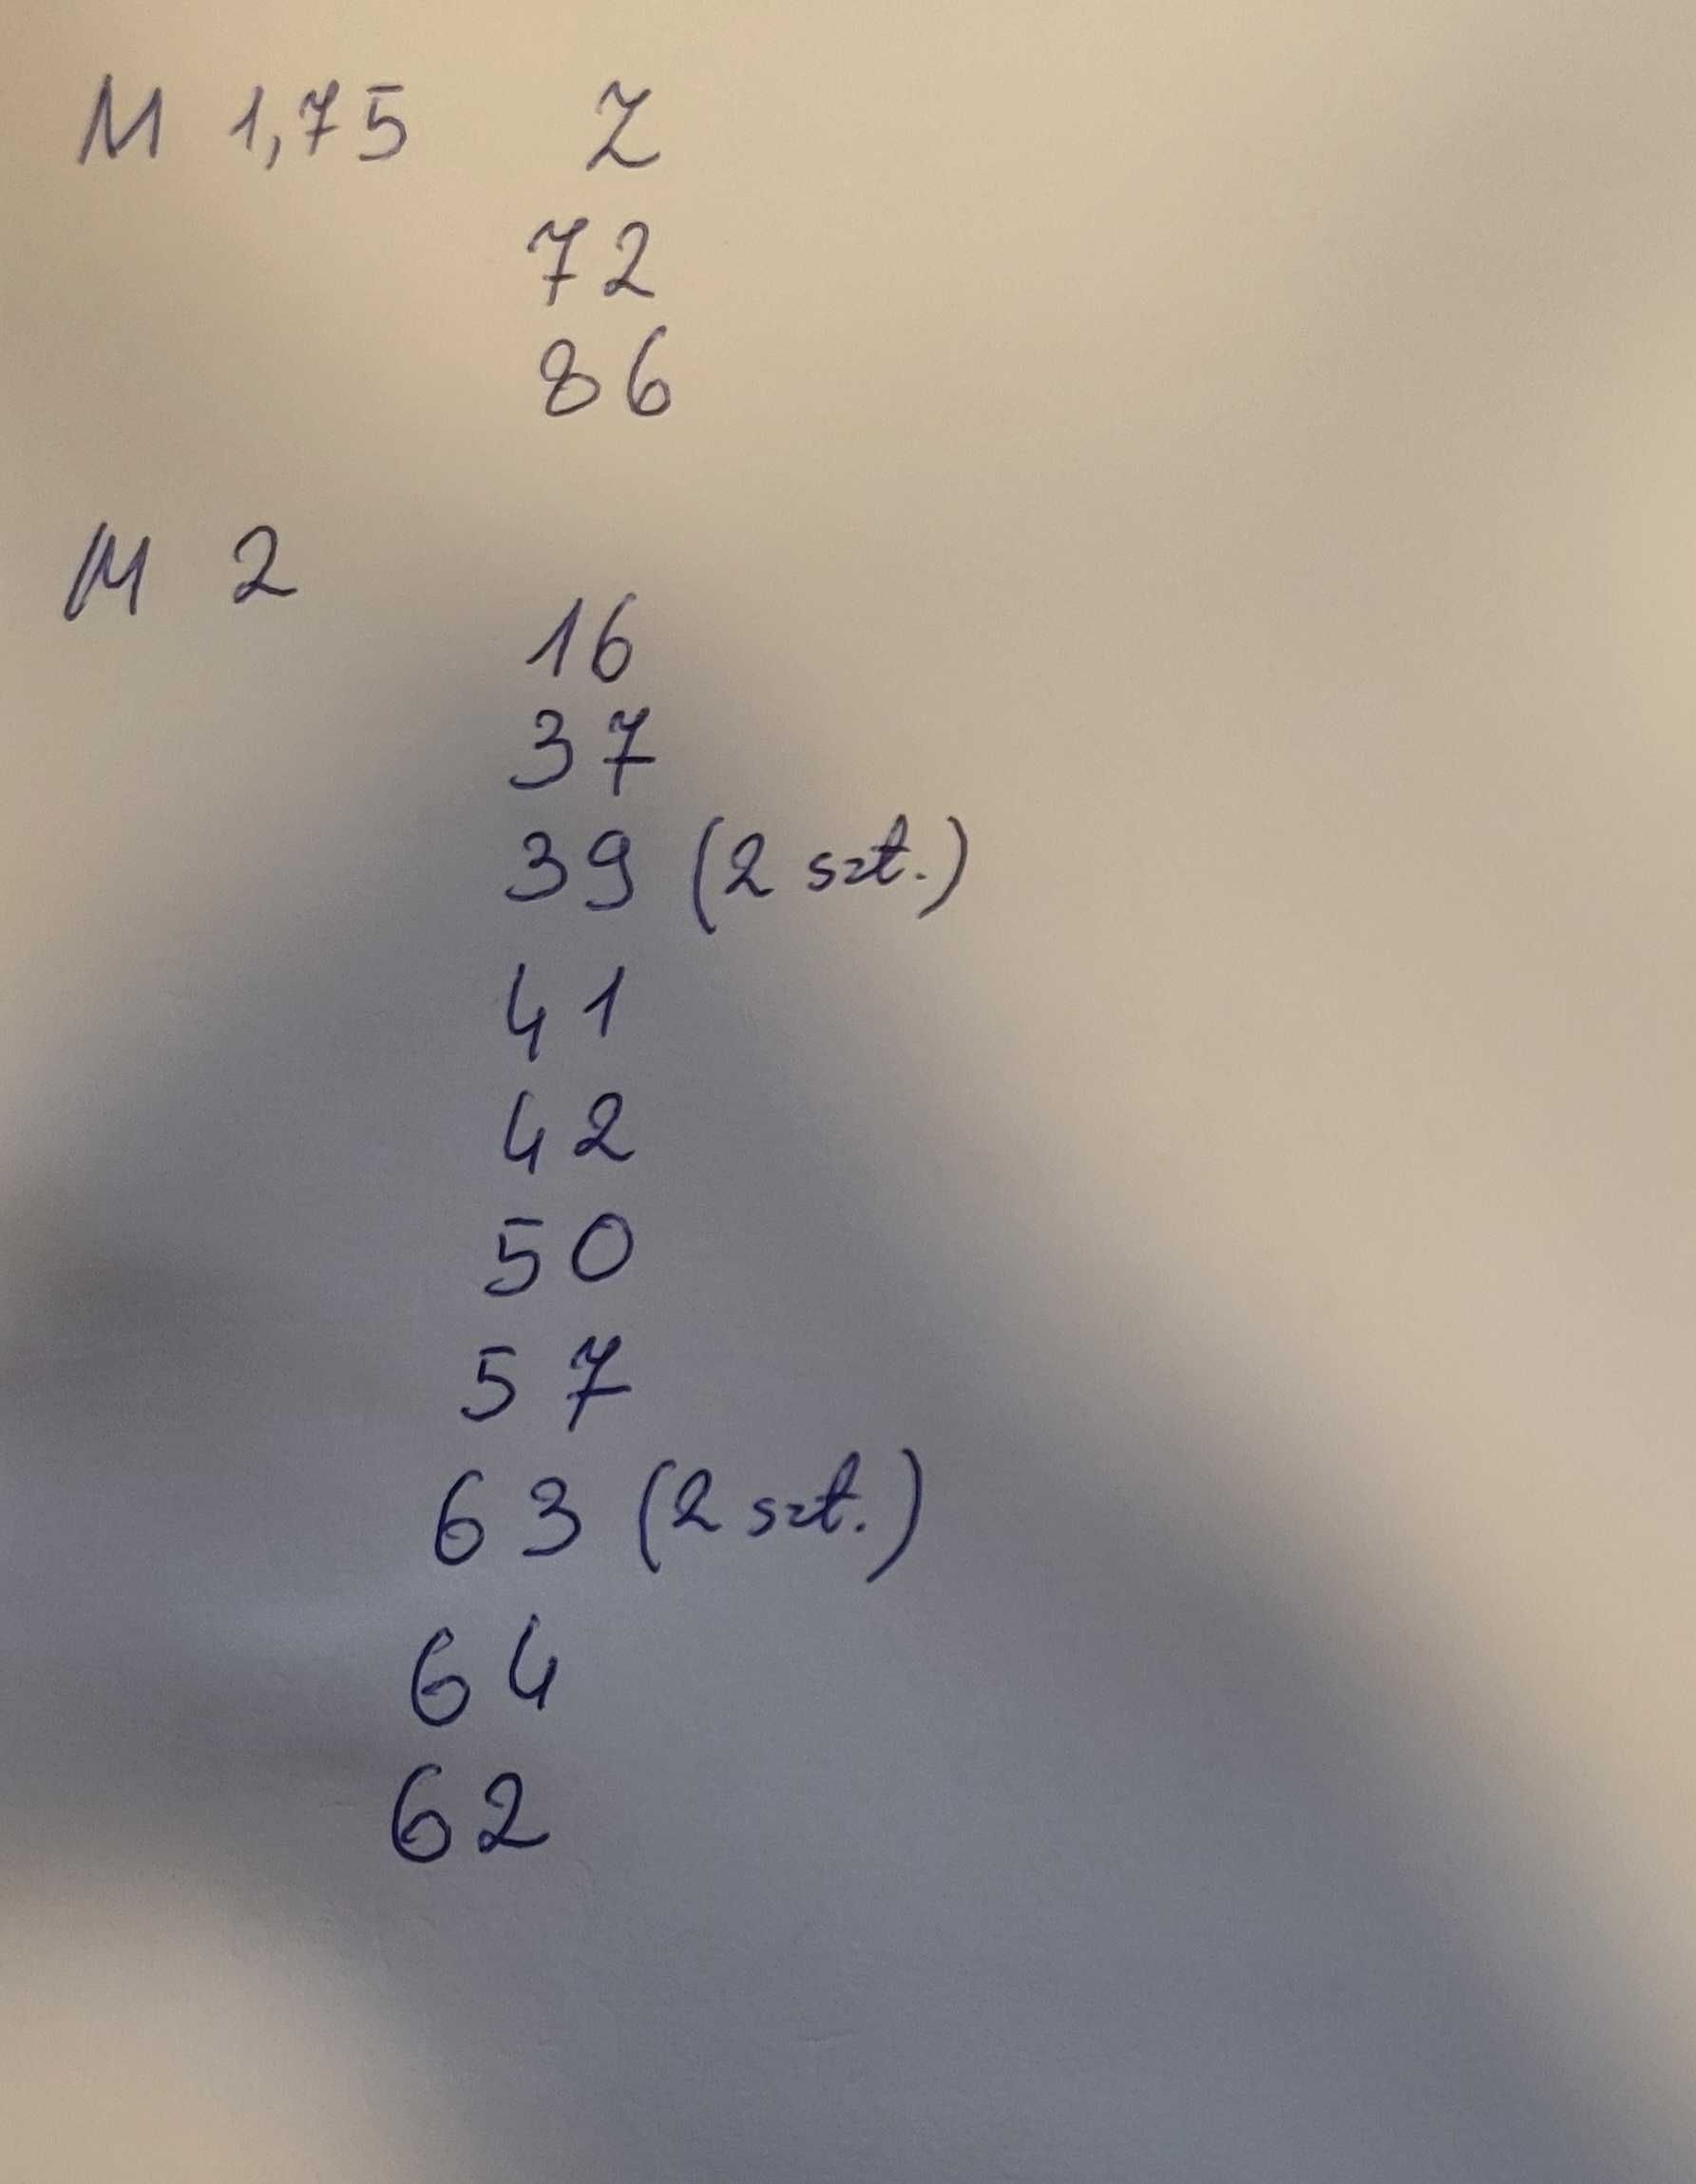 M 1,75 Z
72
86
M 2
16
37
39 (2 szt.)
41
42
50
57
63 (2 szt.)
64
62